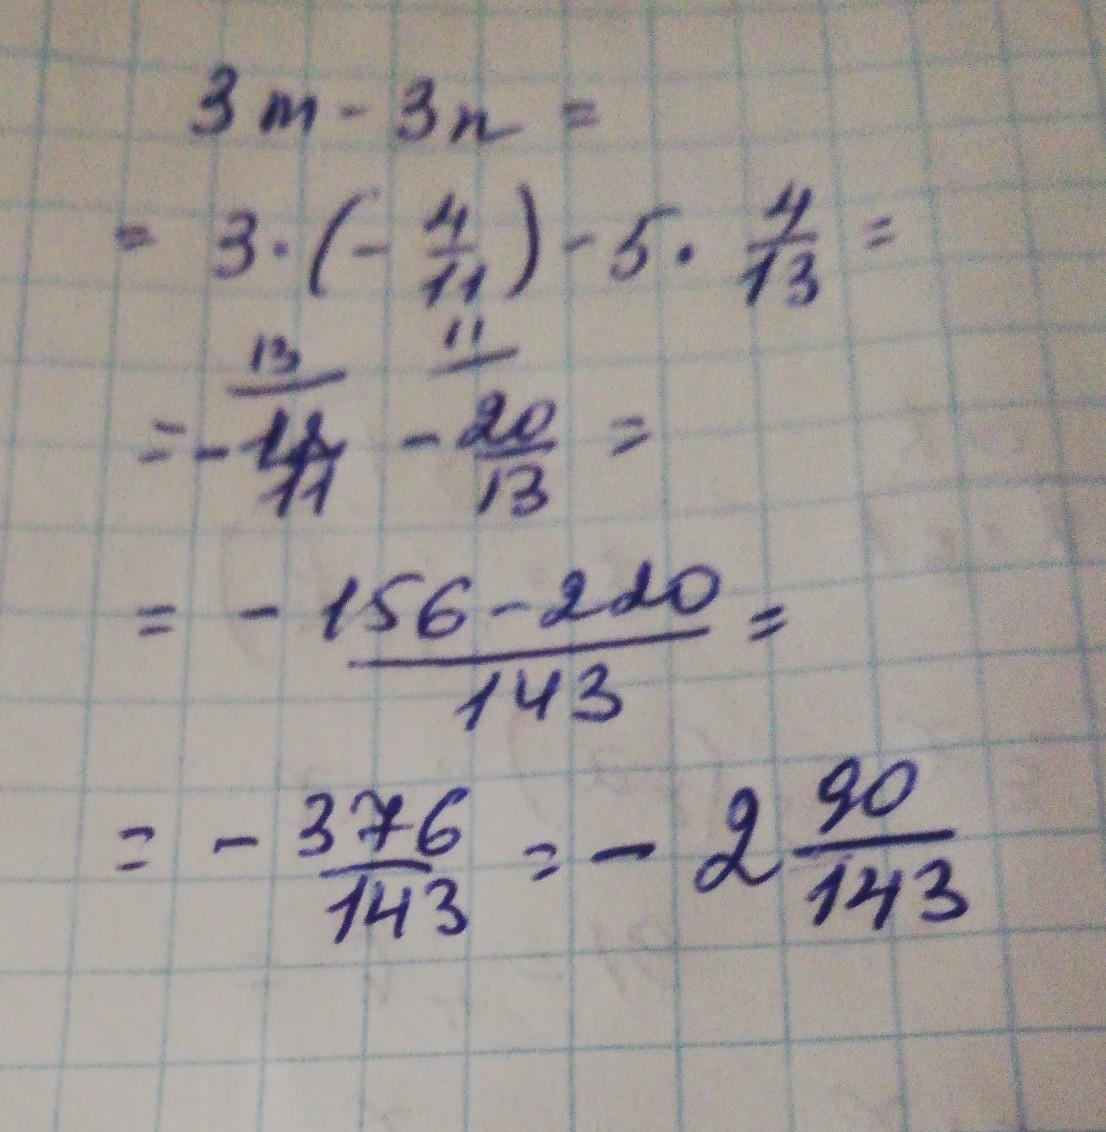 3m - 3n =
= 3 · (- 4/11) - 5 · 4/13 =
13 11
= - 12/11 - 20/13 =
= - 156 - 220 / 143 =
= - 376/143 = - 2 90/143